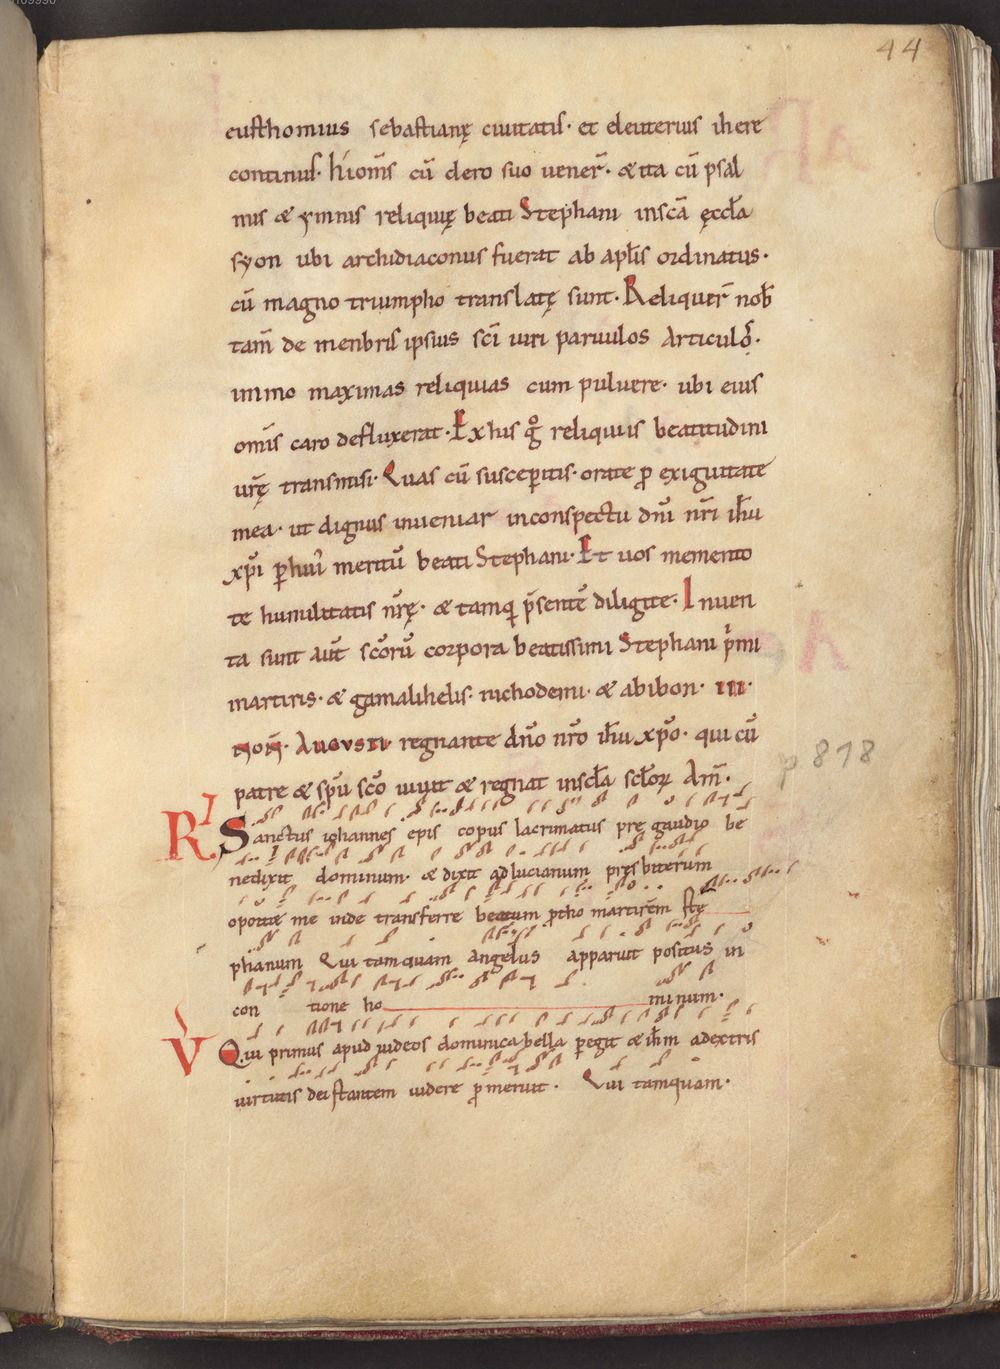 44
eusthomius sebastianę ciuitatis· et eleuterius ihere
continus. hi om̅s cū clero suo uener̅· & ita cū psal
mis & ymnis reliquię beati Stephani insc̅a ęccl̅a
syon ubi archidiaconus fuerat ab apl̅is ordinatus·
cū magno triumpho translatę sunt· Reliquer̅ nob̅
tam̅ de menbris ipsius sc̅i uiri paruulos articulos·
immo maximas reliquias cum puluere· ubi eius
omis̅ caro defluxerat· Ex his g̊ reliquiis beatitudini
ur̅ę transmisi· Quas cū susceperitis· orate ꝓ exiguitate
mea· ut dignus inueniar inconspectu dn̅i nr̅i ih̅u
xp̅i ꝑ hui᾽ meritū beati Stephani· Et uos memento
te humilitatis nr̅ę· & tamq̅ p̅sentē diligite· Inuen
ta sunt aut̅ sc̅orū corpora beatissimi Stephani p̅mi
martiris· & gamalihelis· nichodemi· & abibon· III·
non̅· Augusti regnante dn̅o nr̅o ih̅u xp̅o· qui cū
patre & sp̅u sc̅o uiuit & regnat insc̅la sc̅lorꝝ Am̅·
R Sanctus iohannes epis copus lacrimatus prę gaudio be
nedixit dominum· & dixit ad lucianum presbiterum
oportet me inde transferre beatum ꝓtho martirem stę
phanum Qui tamquam angelus apparuit positus in
con tione ho minum·
V Qui primus apud iudeos dominica bella ꝑegit & ih̅m adextris
uirtutis dei stantem uidere ꝓmeruit· Qui tamquam·
p 818